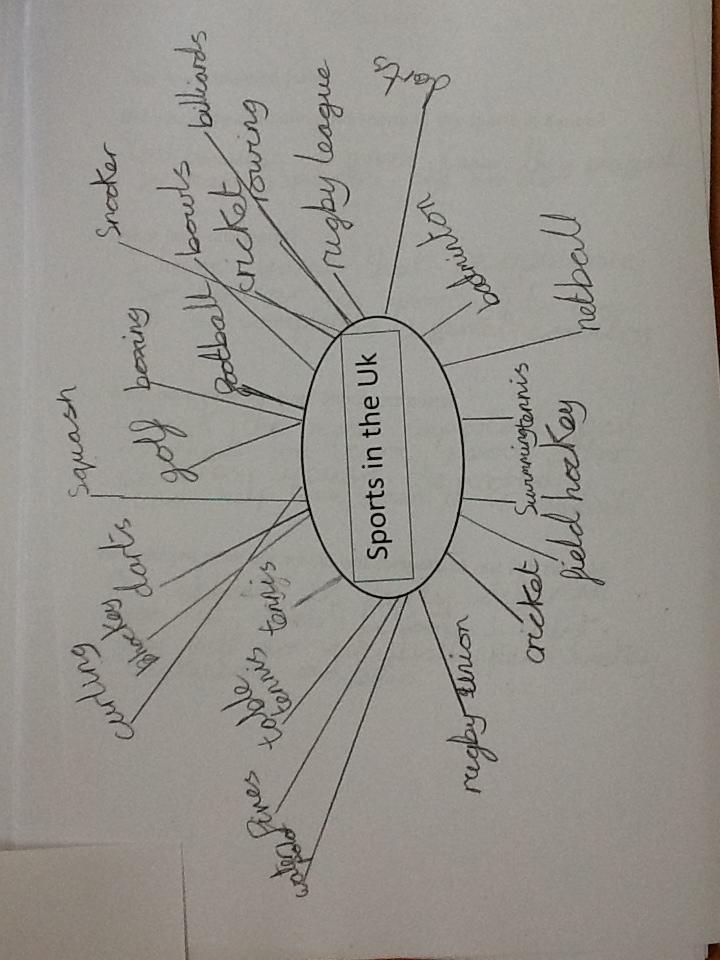 curling
hockey
darts
squash
golf
boxing
snooker
football
bowls
cricket
billiards
rowing
rugby league
tennis
table
tennis
fives
water
polo
Sports in the Uk
badminton
netball
tennis
Swimming
field hockey
cricket
rugby union